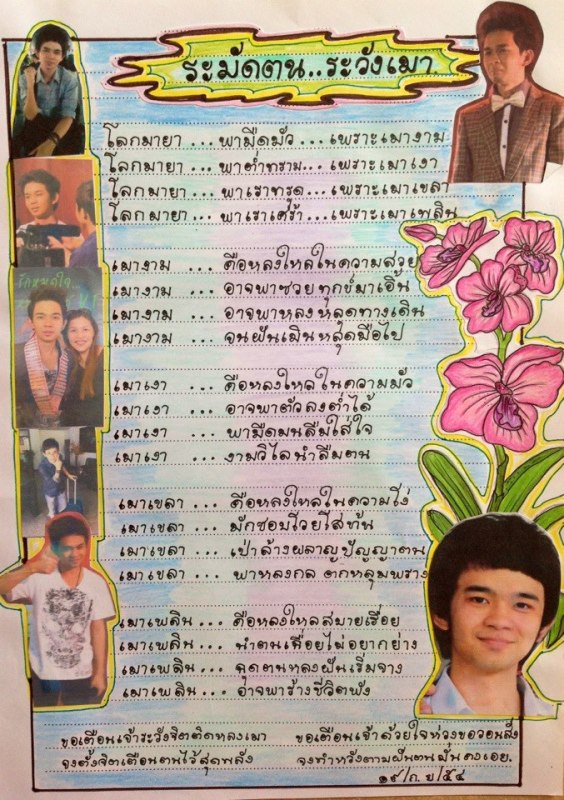 ระมัดตน..ระวังเมา
โลกมายา ... พามืดมัว ... เพราะเมางาม
โลกมายา ... พาต่ำทราม... เพราะเมาเงา
โลกมายา ... พาเราทรุด... เพราะเมาเขลา
โลกมายา ... พาเราเศร้า... เพราะเมาเพลิน
เมางาม ... คือหลงใหลในความสวย
เมางาม ... อาจพาซวยทุกข์มาเอิ้น
เมางาม ... อาจพาหลงหลุดทางเดิน
เมางาม ... จนฝันเมินหลุดมือไป
เมาเงา ... คือหลงใหลในความมัว
เมาเงา ... อาจพาตัวลงต่ำได้
เมาเงา ... พามืดมนลืมใส่ใจ
เมาเงา ... งามวิไลนำลืมตน
เมาเขลา ... คือหลงใหลในความโง่
เมาเขลา ... มักชอบโวยใส่
เมาเขลา ... เป่าล้างผลาญปัญญาตน
เมาเขลา ... พาหลงกล ตกหลุมพราง
เมาเพลิน ... คือหลงใหลสบายเรื่อย
เมาเพลิน ... นำตนเฉื่อยไม่อยากย่าง
เมาเพลิน ... ฉุดตนหลงฝันเริ่มจาง
เมาเพลิน ... อาจพาร้างชีวิตพัง
ขอเตือนเจ้าระวังจิตคิดหลงเมา ขอเตือนเจ้าด้วยใจห่วงขอวอนสั่ง
จงตั้งจิตเตือนตนไว้สุดพลัง จงทำหวังตามฝันตนมั่นคงเอย.
๑๙/ก.ย/๕๔
รักหมดใจ..